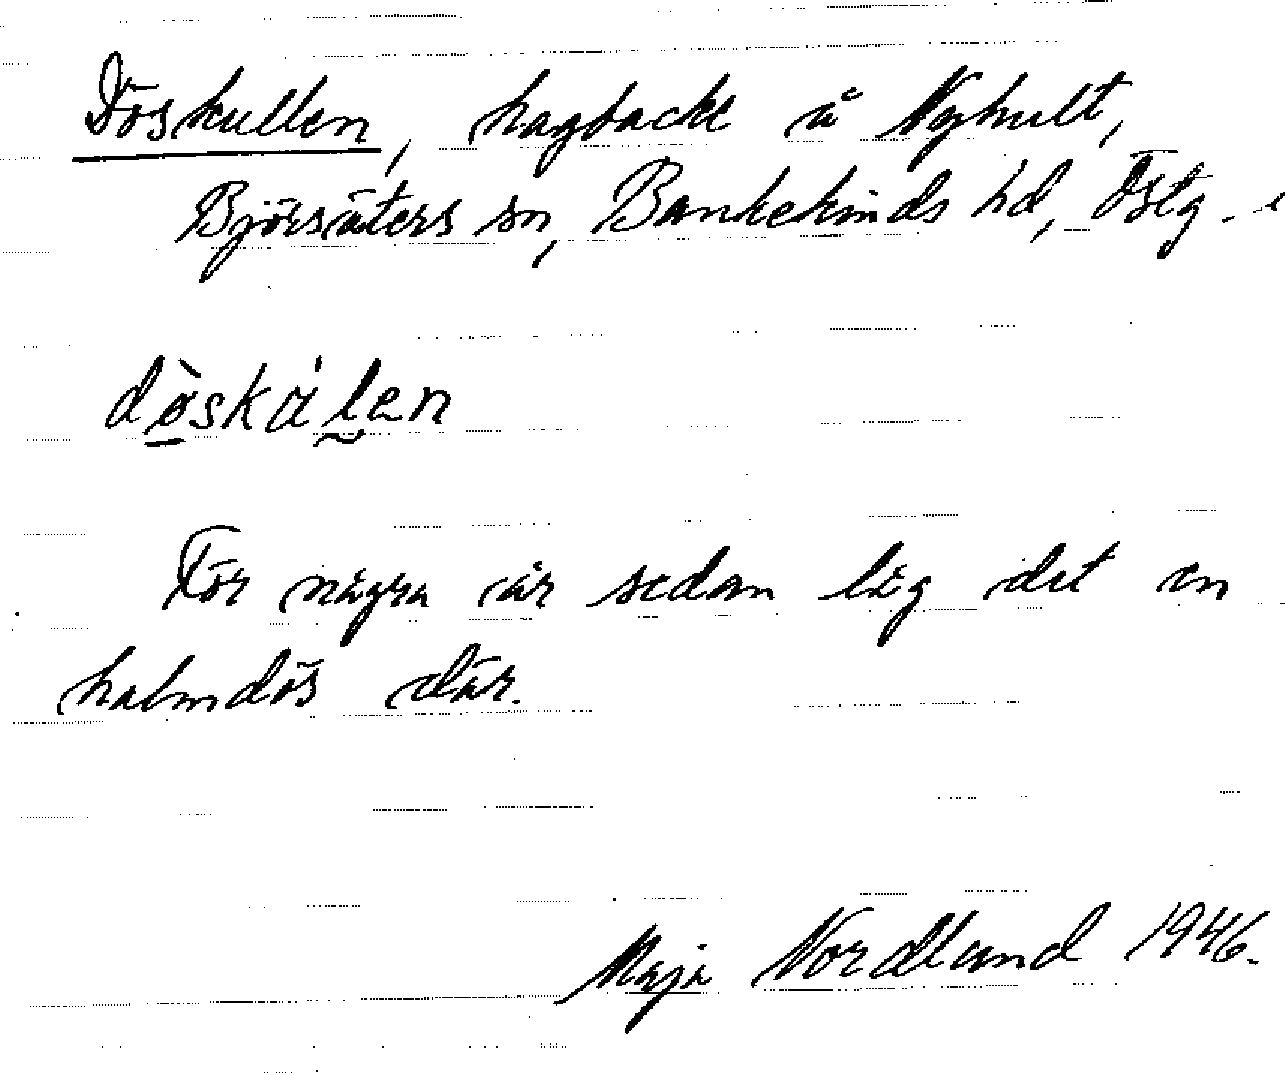 Döskullen, hagbacke å Nyhult,
Björsäters sn, Bankekinds hd, Östg.
dø̀skálen
För några år sedan låg det en
halmdös där.
Maja Nordlund 1946.